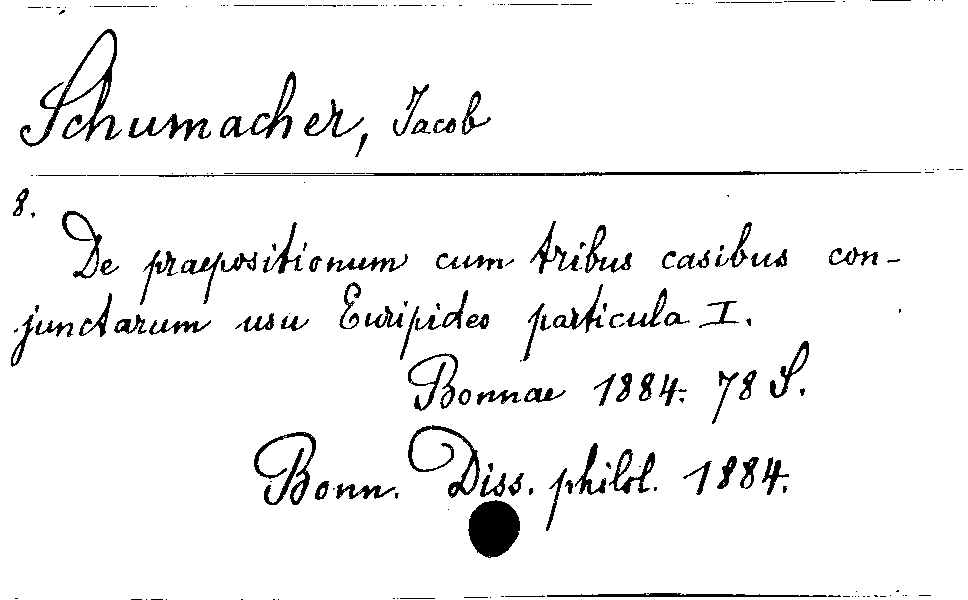 Schumacher, Jacob
8.
De praepositionum cum tribus casibus con-
junctarum usu Euripideo particula I.
Bonnae 1884. 78 S.
Bonn. Diss. philol. 1884.